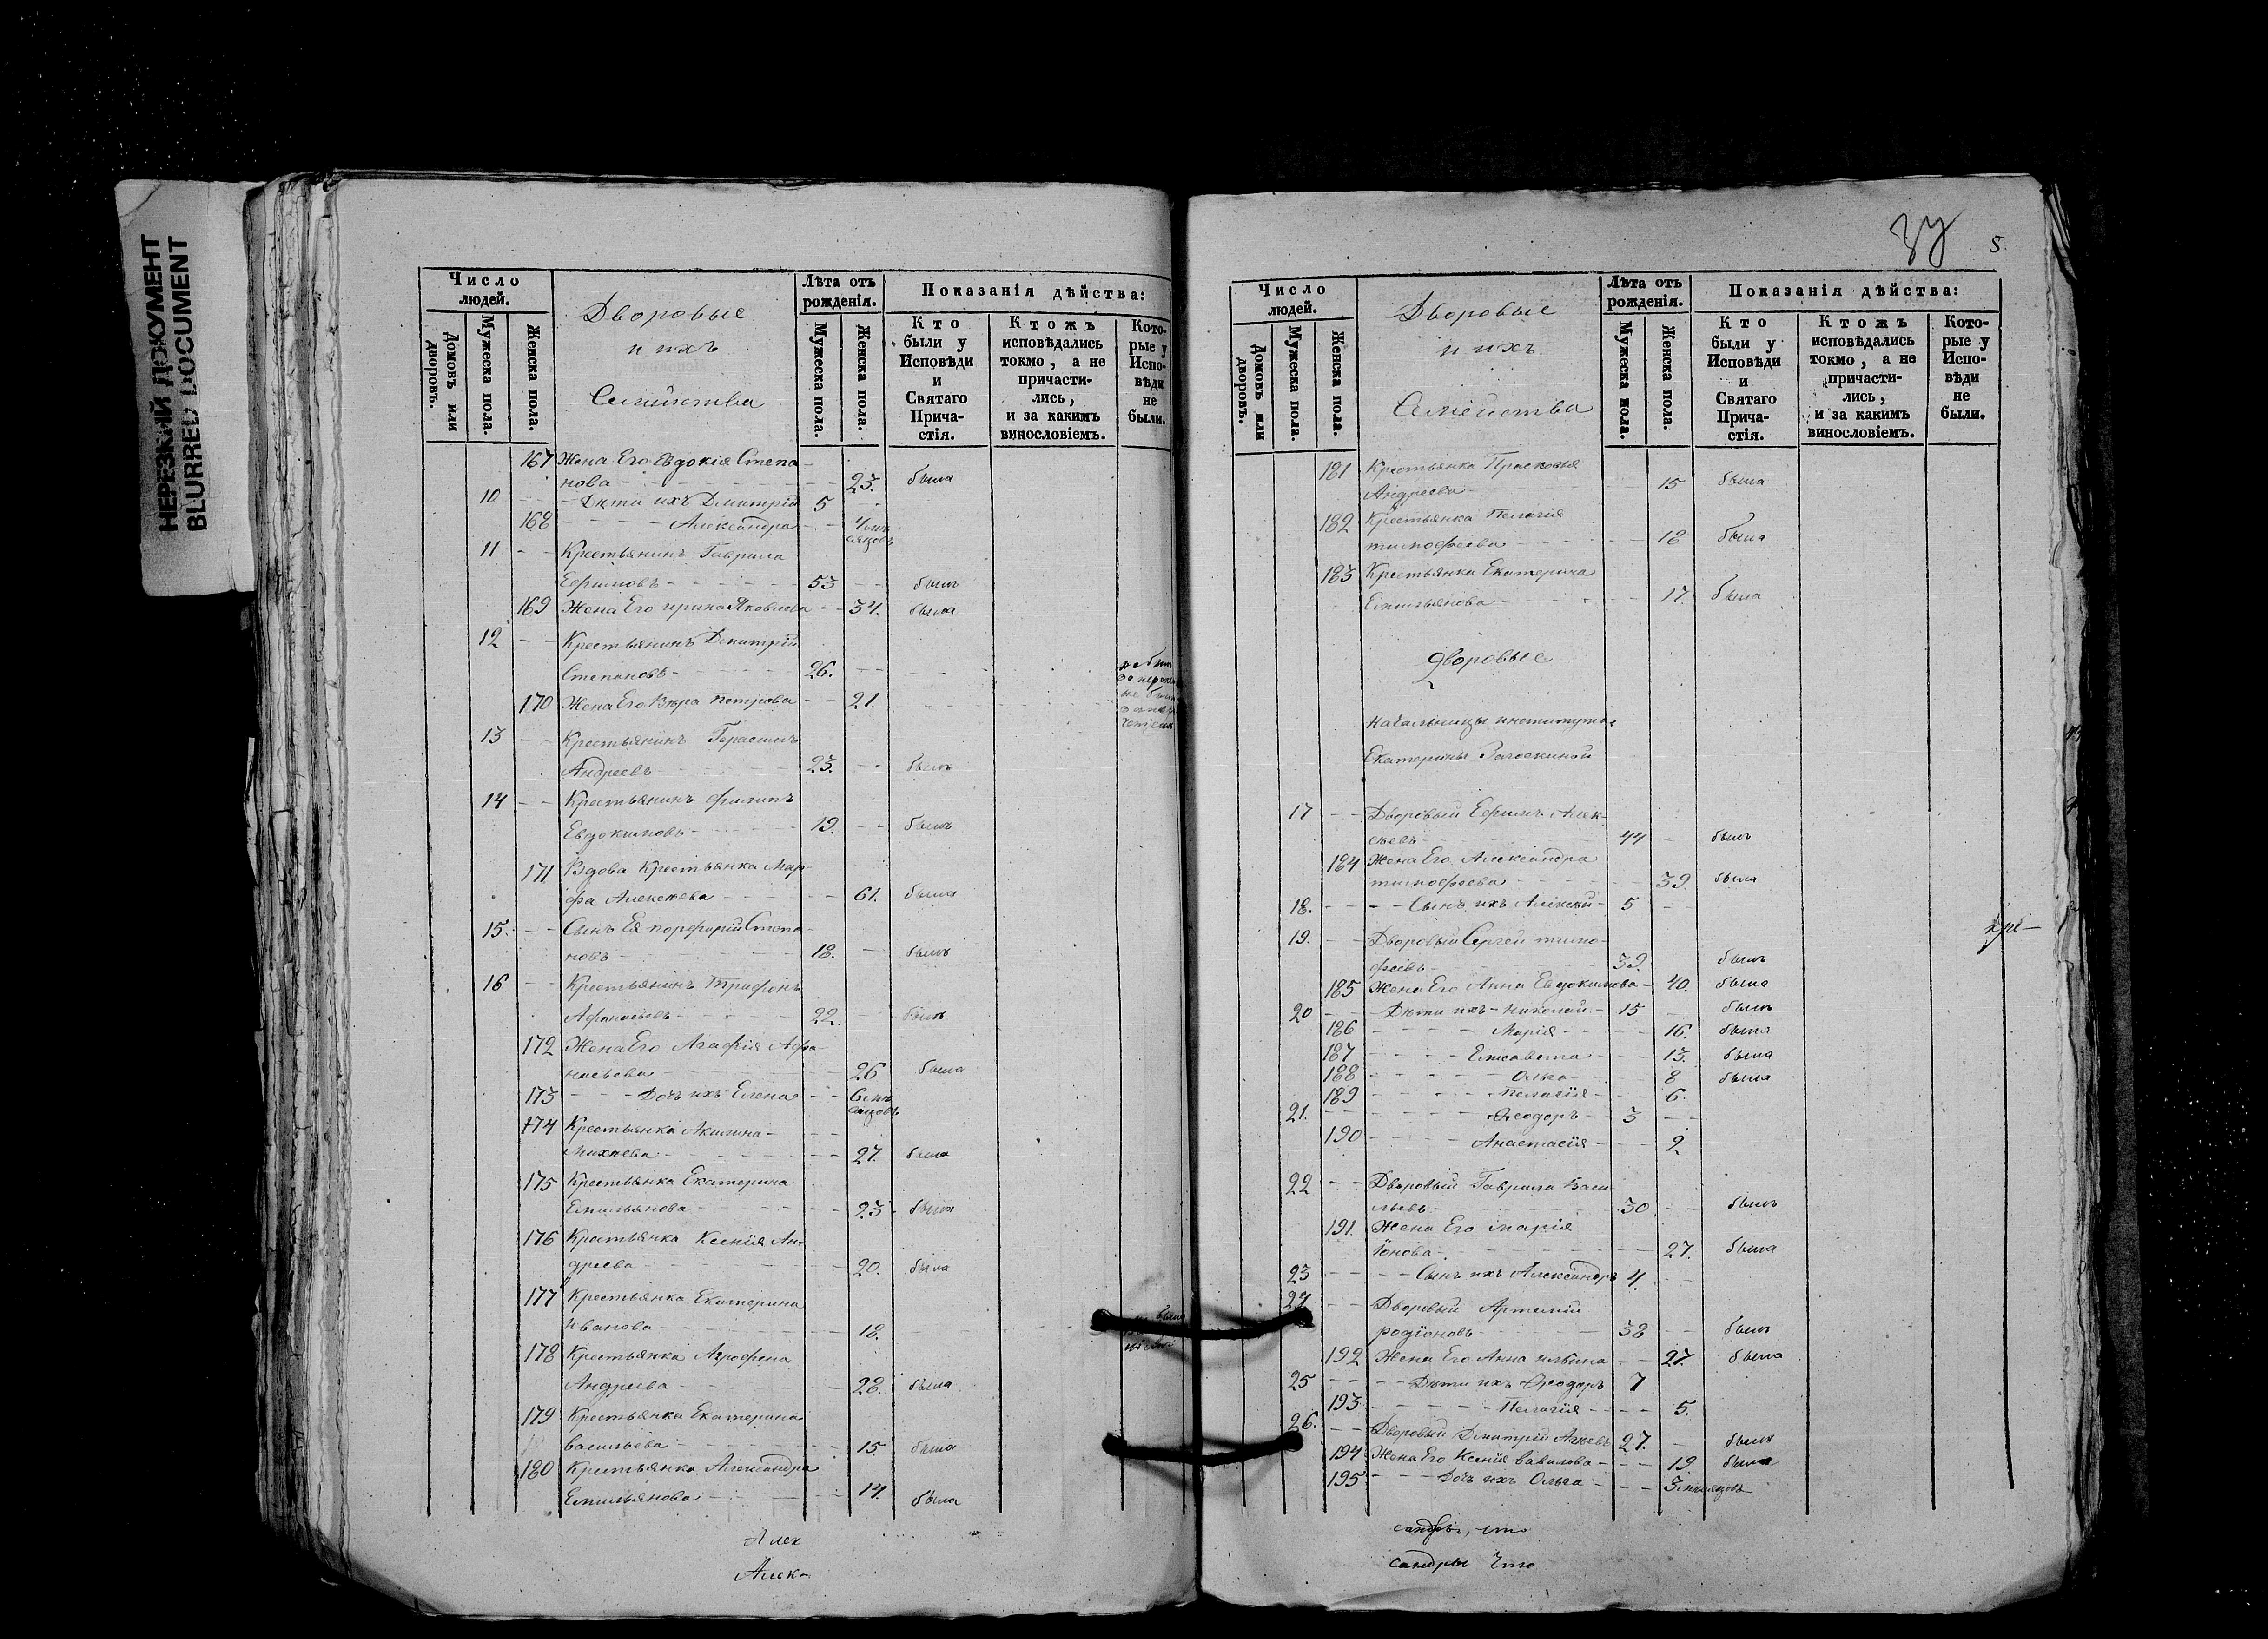 НЕРЕЗКИЙ ДОКУМЕНТ
BLURRED DOCUMENT
Число людей.
Домовъ или дворовъ.
Мужеска пола.
Женска пола.
Дворовые
и ихъ
Семѣйства
Лѣта отъ рожденія.
Мужеска пола.
Женска пола.
Показанія дѣйства:
Кто были у Исповѣди и Святаго Прича-стія.
Ктожъ исповѣдались токмо, а не причасти-лись, и за какимъ винословіемъ.
Кото-рые у Испо-вѣди не были.
167 Жена Его Евдокія Степа-
нова - 23. была
10 - Дѣти ихъ Дмитрій 5
168 - Александра -
11 - Крестьянинъ Гаврила
Ефимовъ - 53 - былъ
169 Жена Его ирина Яковлева - 34. была
12 - Крестьянинъ Дмитрій
Степановъ - 26.
170 Жена Его Вѣра Петрова - 21.
13 - Крестьянинъ Герасимъ
Андреевъ - 23. - былъ
14 - Крестьянинъ Филипъ
Евдокимовъ - 19. - былъ
171 Вдова Крестьянка Мар-
фа Алексѣева - 61. была
15. - Сынъ Ея порфирій Степа-
новъ - 18. - былъ
16 - Крестьянинъ Трифонъ
Афанасьевъ - 22. - былъ
172 Жена Его Агафія Афа
насьева - 26 была
173 - Дочь ихъ Елена - 6
174 Крестьянка Акилина -
Михѣева - 27. была
175 Крестьянка Екатерина
Емильянова - 23 - была
176 Крестьянка Ксенія Ан-
дреева - 20. была
177 Крестьянка Екатерина
Иванова - 18.
178 Крестьянка Агрофена
Андреева - 28. была
179 Крестьянка Екатерина
васильева - 15 была
180 Крестьянка Александра
Емильянова - 14. была
Алек
Алек-
5
Число людей.
Домовъ или дворовъ.
Мужеска пола.
Женска пола.
Дворовые
и ихъ
Семѣйства
Лѣта отъ рожденія.
Мужеска пола.
Женска пола.
Показанія дѣйства:
Кто были у Исповѣди и Святаго Прича-стія.
Ктожъ исповѣдались токмо, а не причасти-лись, и за какимъ винословіемъ.
Кото-рые у Испо-вѣди не были.
181 Крестьянка Прасковья
Андреева 15 была
182 Крестьянка Пелагія
тимофеева - 18 была
183 Крестьянка Екатерина
Емильянова - 17. была
Дворовые
Начальницы института
Екатерины Загоскиной
17 - Дворовый Ефимъ Алек-
сѣевъ 44 - былъ
184 Жена Его Александра
тимофеева - 39. была
18. - Сынъ ихъ Алексѣй - 5
19. - Дворовый Сергѣй тимо-
феевъ - 39. былъ
185 Жена Его Анна Евдокимова - 40. была
20 - Дѣти ихъ - Николай - 15 - былъ
186 - Марія - 16. была
187 - Елисавета - 13. была
188 - Ольга - 8 была
189 - Пелагія - 6.
21. - Ѳеодоръ - 3
190 - Анастасія - 2
22 - Дворовый Гаврила Васи
льевъ - 30 - былъ
191. Жена Его Марія
Іонова - 27. была
23 - Сынъ ихъ Александръ 4.
24 - Дворовый Артемій
родіоновъ - 38 - былъ
192 Жена Его Анна ильина - 27. была
25 - Дѣти ихъ Ѳеодоръ 7
193 - Пелагія - 5.
26. - Дворовый Дмитрій 27. - былъ
194 Жена Его Ксенія вавилова - 19 была
195 - Дочь ихъ Ольга - 3
сандры, что
сандры что